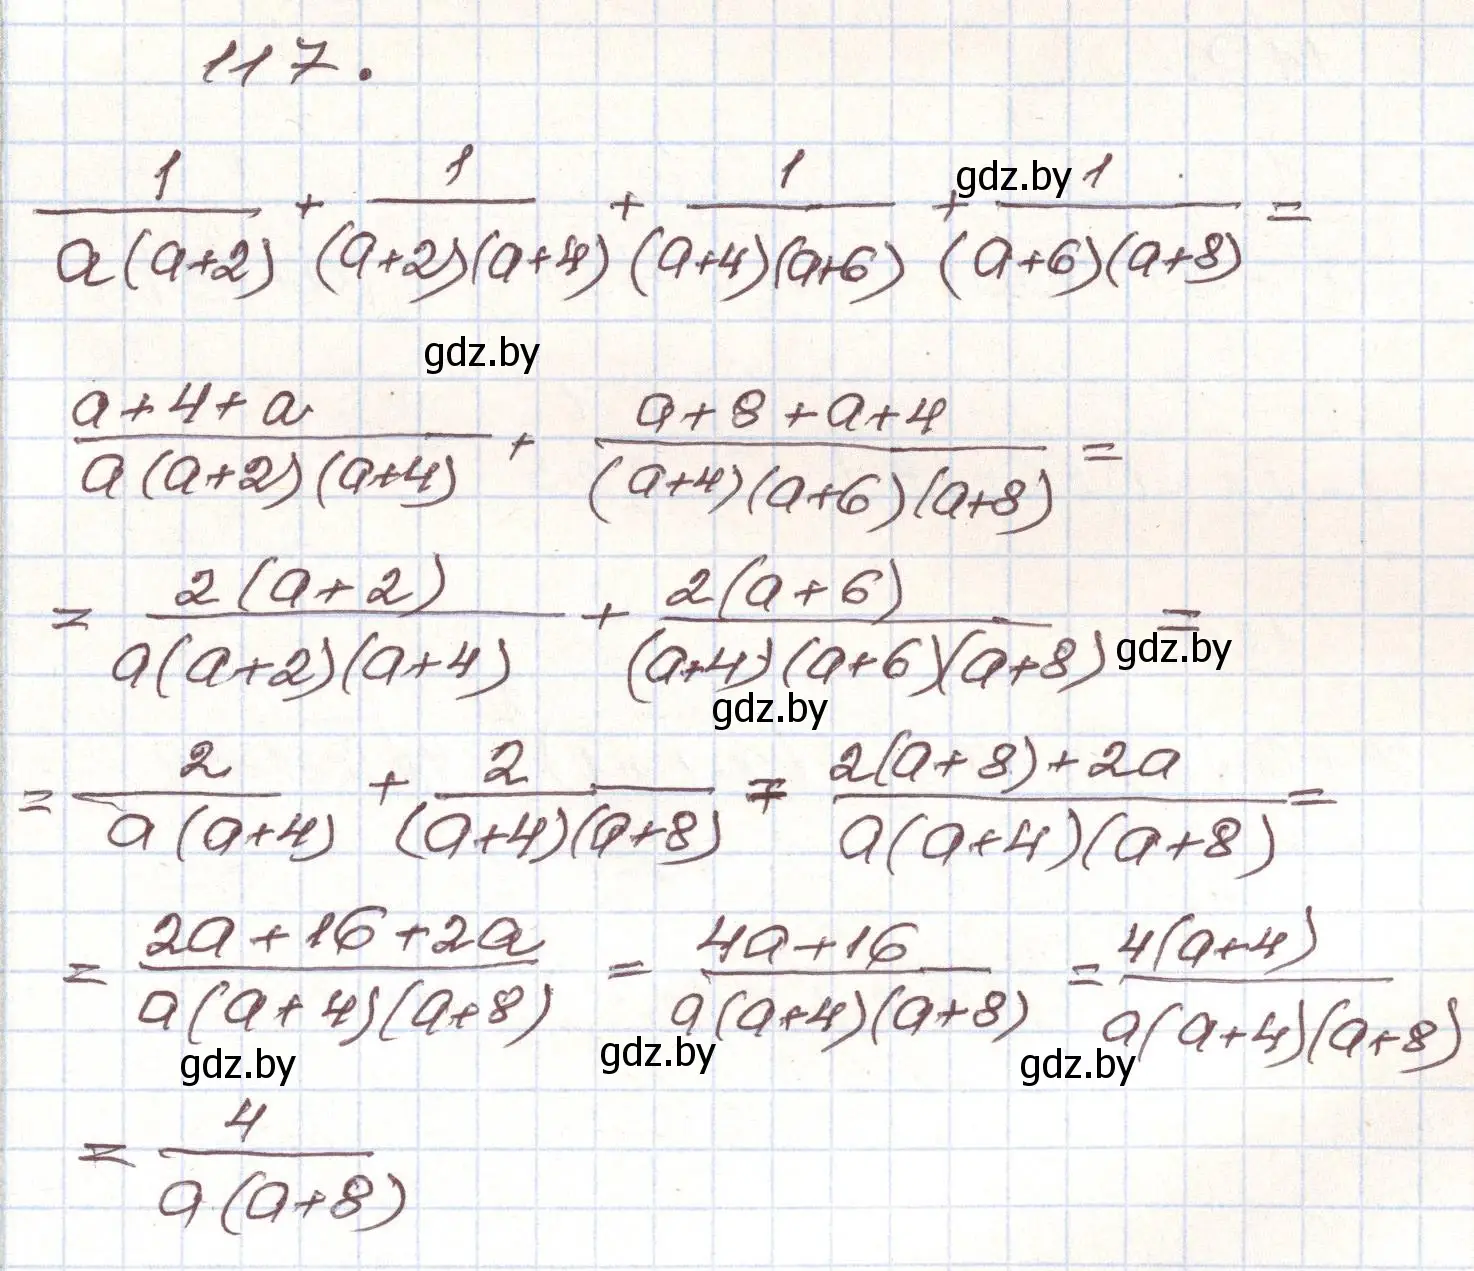 117.
1/(a(a+2)) + 1/((a+2)(a+4)) + 1/((a+4)(a+6)) + 1/((a+6)(a+8)) =
gdz.by
gdz.by
(a+4+a)/(a(a+2)(a+4)) + (a+8+a+4)/((a+4)(a+6)(a+8)) =
= 2(a+2)/(a(a+2)(a+4)) + 2(a+6)/((a+4)(a+6)(a+8)) =
gdz.by
gdz.by
= 2/(a(a+4)) + 2/((a+4)(a+8)) = (2(a+8)+2a)/(a(a+4)(a+8)) =
= (2a+16+2a)/(a(a+4)(a+8)) = (4a+16)/(a(a+4)(a+8)) = 4(a+4)/(a(a+4)(a+8))
gdz.by
gdz.by
gdz.by
= 4/(a(a+8))